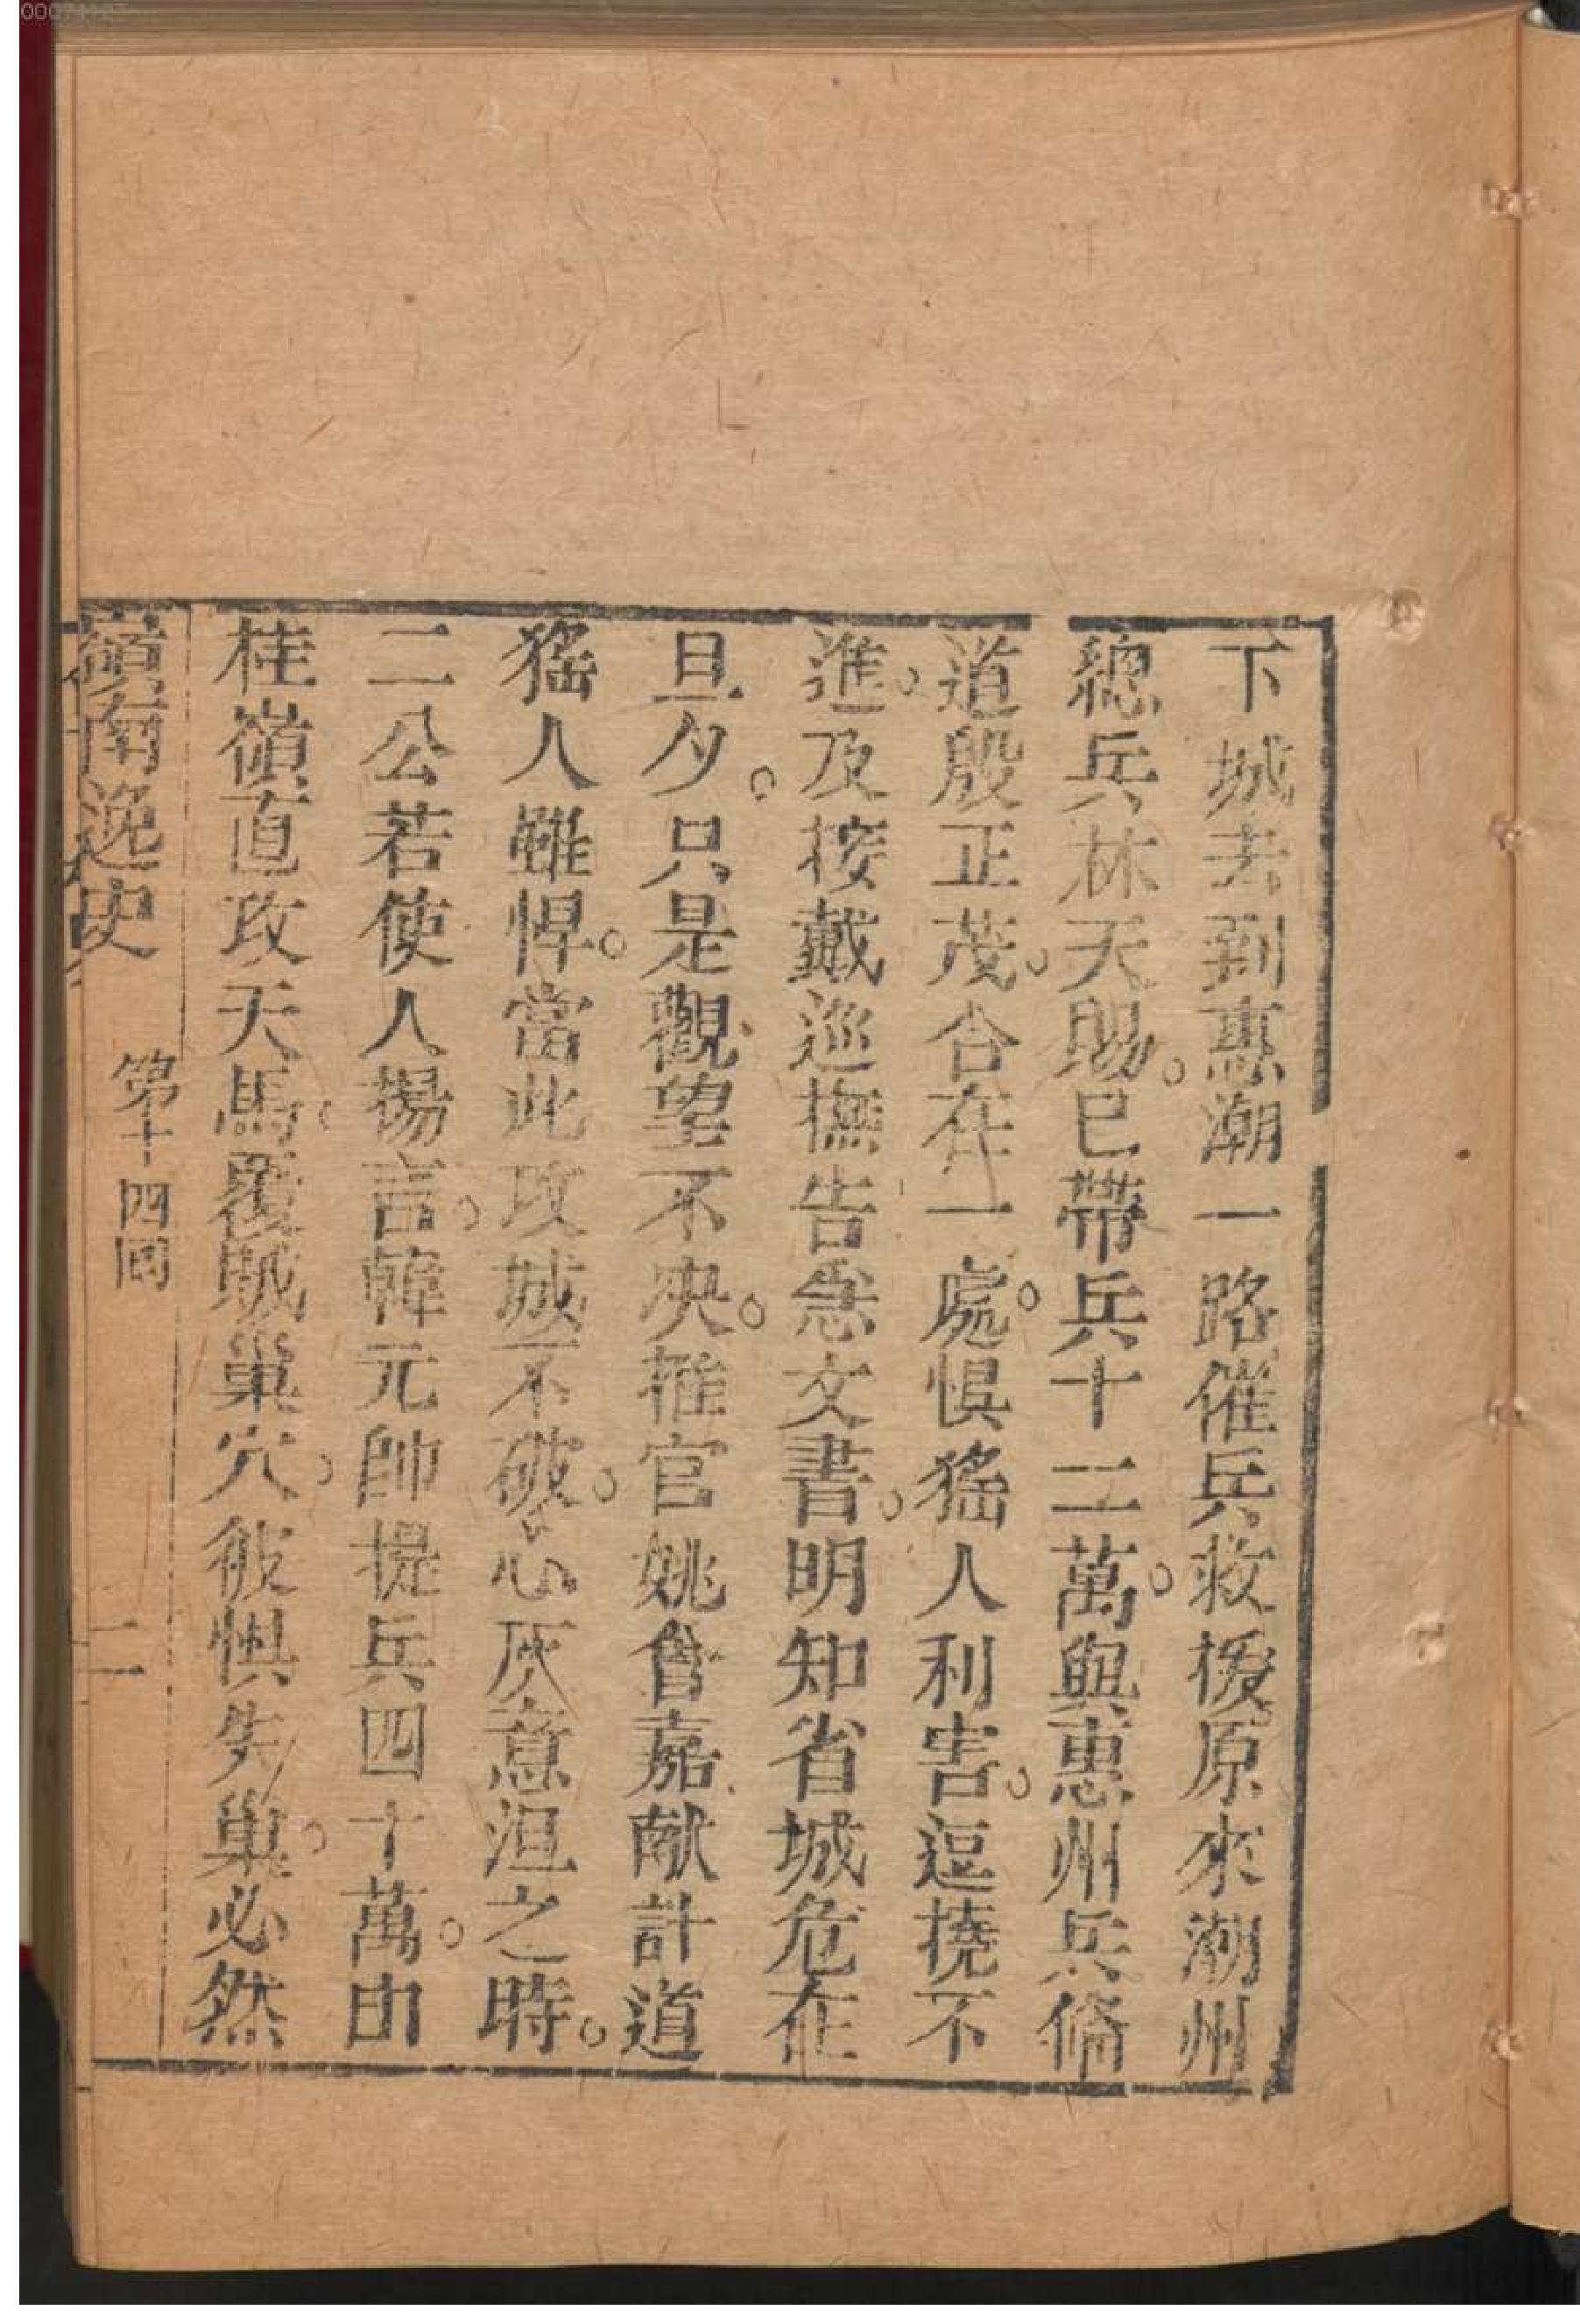 下城去到惠潮一路催兵救援原來潮州
總兵林天賜。已帶兵十二萬。與惠州兵備
道殷正茂。合在一處。惧猺人利害。逗撓不
進。及接戴巡撫告急文書。明知省城危在
旦夕。只是觀望不决。推官姚會嘉献計道
猺人雖悍。當此攻城不破。心灰意沮之時。
二公若使人揚言。韓元帥提兵四十萬。由
桂嶺直攻天馬。覆賊巢穴。彼惧失巢。必然
嶺南逸史 第十四回 二